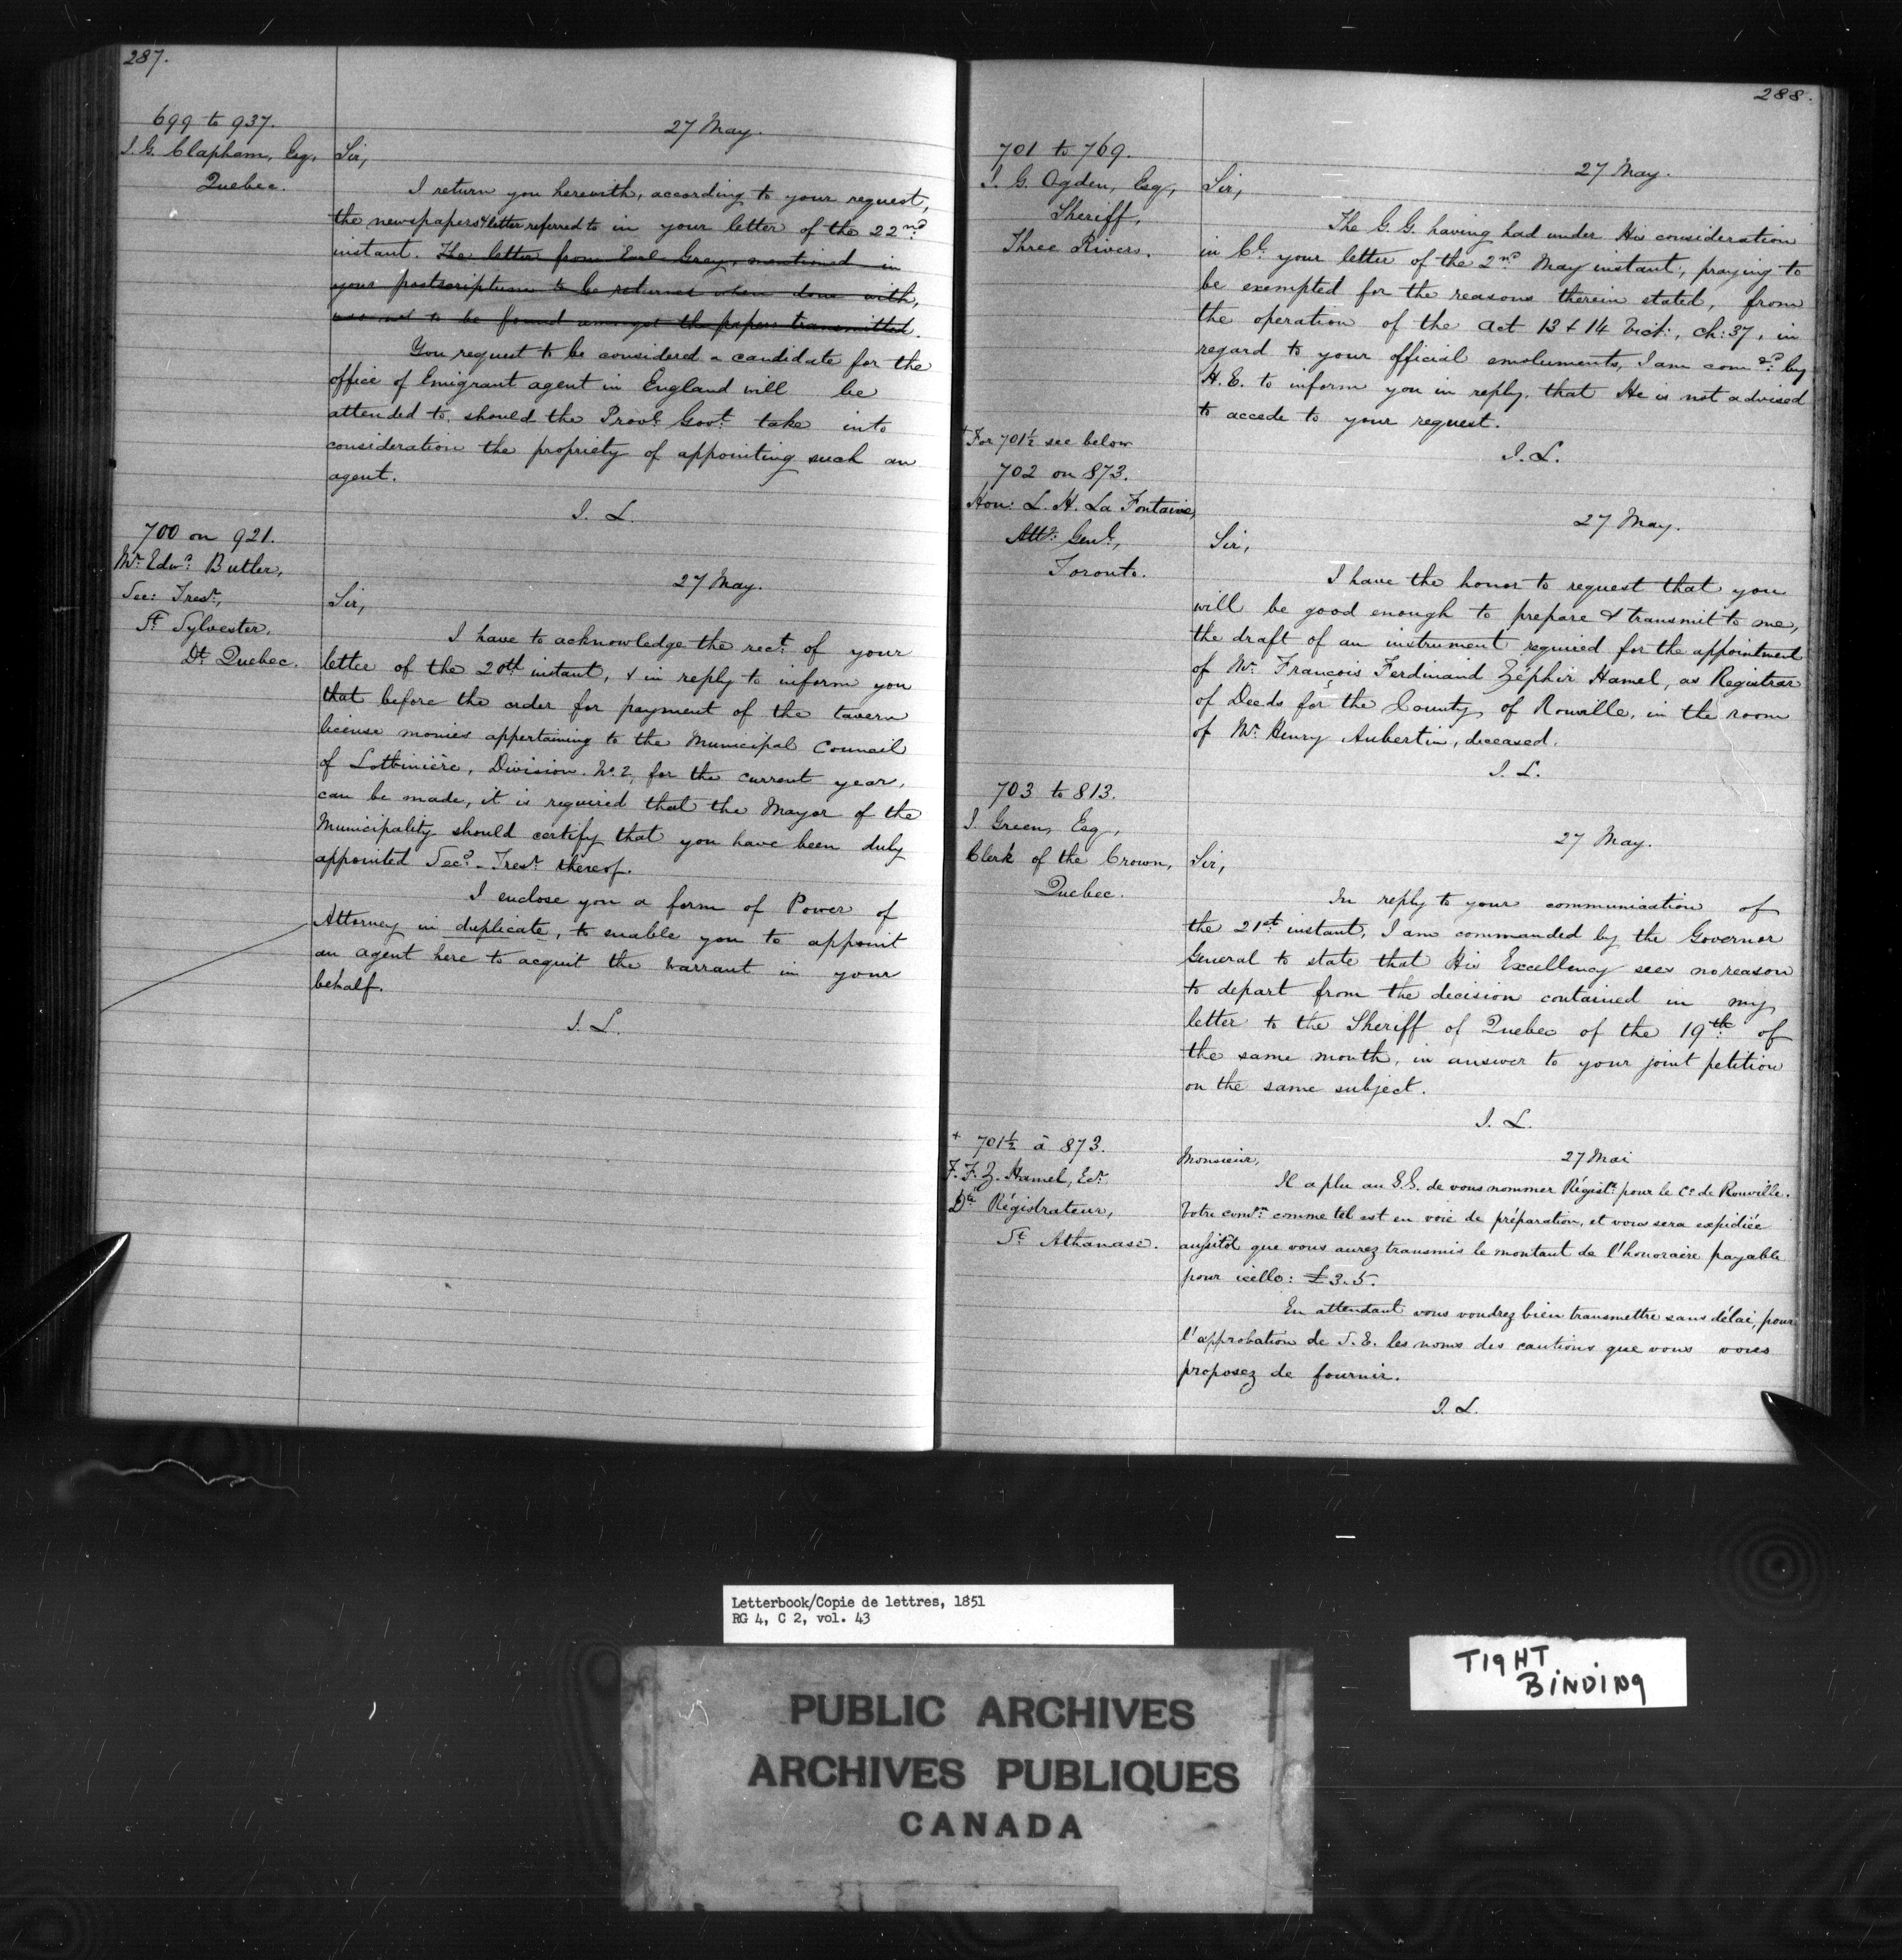 287.
699 to 937.
J. G. Clapham, Esq,
Quebec.
27 May.
Sir,
I return you herewith, according to your request,
the newspapers & letter referred to in your letter of the 22nd
instant. The letter from Earl Grey, mentioned in
your postscriptum to be returned when done with,
was not to be found amongst the papers transmitted.
You request to be considered a candidate for the
office of Emigrant agent in England will be
attended to, should the Provl. Govt. take into
consideration the propriety of appointing such an
agent.
J. L.
700 on 921.
Mr. Edwd. Butler,
Sec: Tresr.,
St. Sylvester,
Dt. Quebec.
27 May.
Sir,
I have to acknowledge the rect. of your
letter of the 20th instant, & in reply to inform you
that before the order for payment of the tavern
license monies appertaining to the Municipal Council
of Lotbinière, Division No. 2, for the current year,
can be made, it is required that the Mayor of the
Municipality should certify that you have been duly
appointed Secy.-Tresr. thereof.
I enclose you a form of Power of
Attorney in duplicate, to enable you to appoint
an agent here to acquit the warrant in your
behalf.
J. L.
288.
701 to 769.
I. G. Ogden, Esq,
Sheriff,
Three Rivers.
27 May.
Sir,
The G. G. having had under His consideration
in Cl. your letter of the 2nd May instant, praying to
be exempted for the reasons therein stated, from
the operation of the act 13 & 14 Vict:, ch: 37, in
regard to your official emoluments, I am comdd. by
H. E. to inform you in reply, that He is not advised
to accede to your request.
J. L.
+ For 701½ see below
702 on 873.
Hon: L. H. La Fontaine,
Atty: Genl.,
Toronto.
27 May.
Sir,
I have the honor to request that you
will be good enough to prepare & transmit to me,
the draft of an instrument required for the appointment
of Mr. François Ferdinand Zéphir Hamel, as Registrar
of Deeds for the County of Rouville, in the room
of Mr. Henry Aubertin, deceased.
J. L.
703 to 813.
J. Green, Esq,
Clerk of the Crown,
Quebec.
27 May.
Sir,
In reply to your communication of
the 21st instant, I am commanded by the Governor
General to state that His Excellency sees no reason
to depart from the decision contained in my
letter to the Sheriff of Quebec of the 19th of
the same month, in answer to your joint petition
on the same subject.
J. L.
+ 701½ à 873.
F. F. Z. Hamel, Ecr.
Dte. Régistrateur,
St. Athanase.
27 Mai
Monsieur,
Il a plu au G. G. de vous nommer Régistr. pour le Co. de Rouville.
Votre comon. comme tel est en voie de préparation, et vous sera expédiée
aussitôt que vous aurez transmis le montant de l'honoraire payable
pour icelle: £3.5.
En attendant vous voudrez bien transmettre sans délai, pour
l'approbation de S. E. les noms des cautions que vous vous
proposez de fournir.
J. L.
Letterbook/Copie de lettres, 1851
RG 4, C 2, vol. 43
TIGHT
BINDING
PUBLIC ARCHIVES
ARCHIVES PUBLIQUES
CANADA